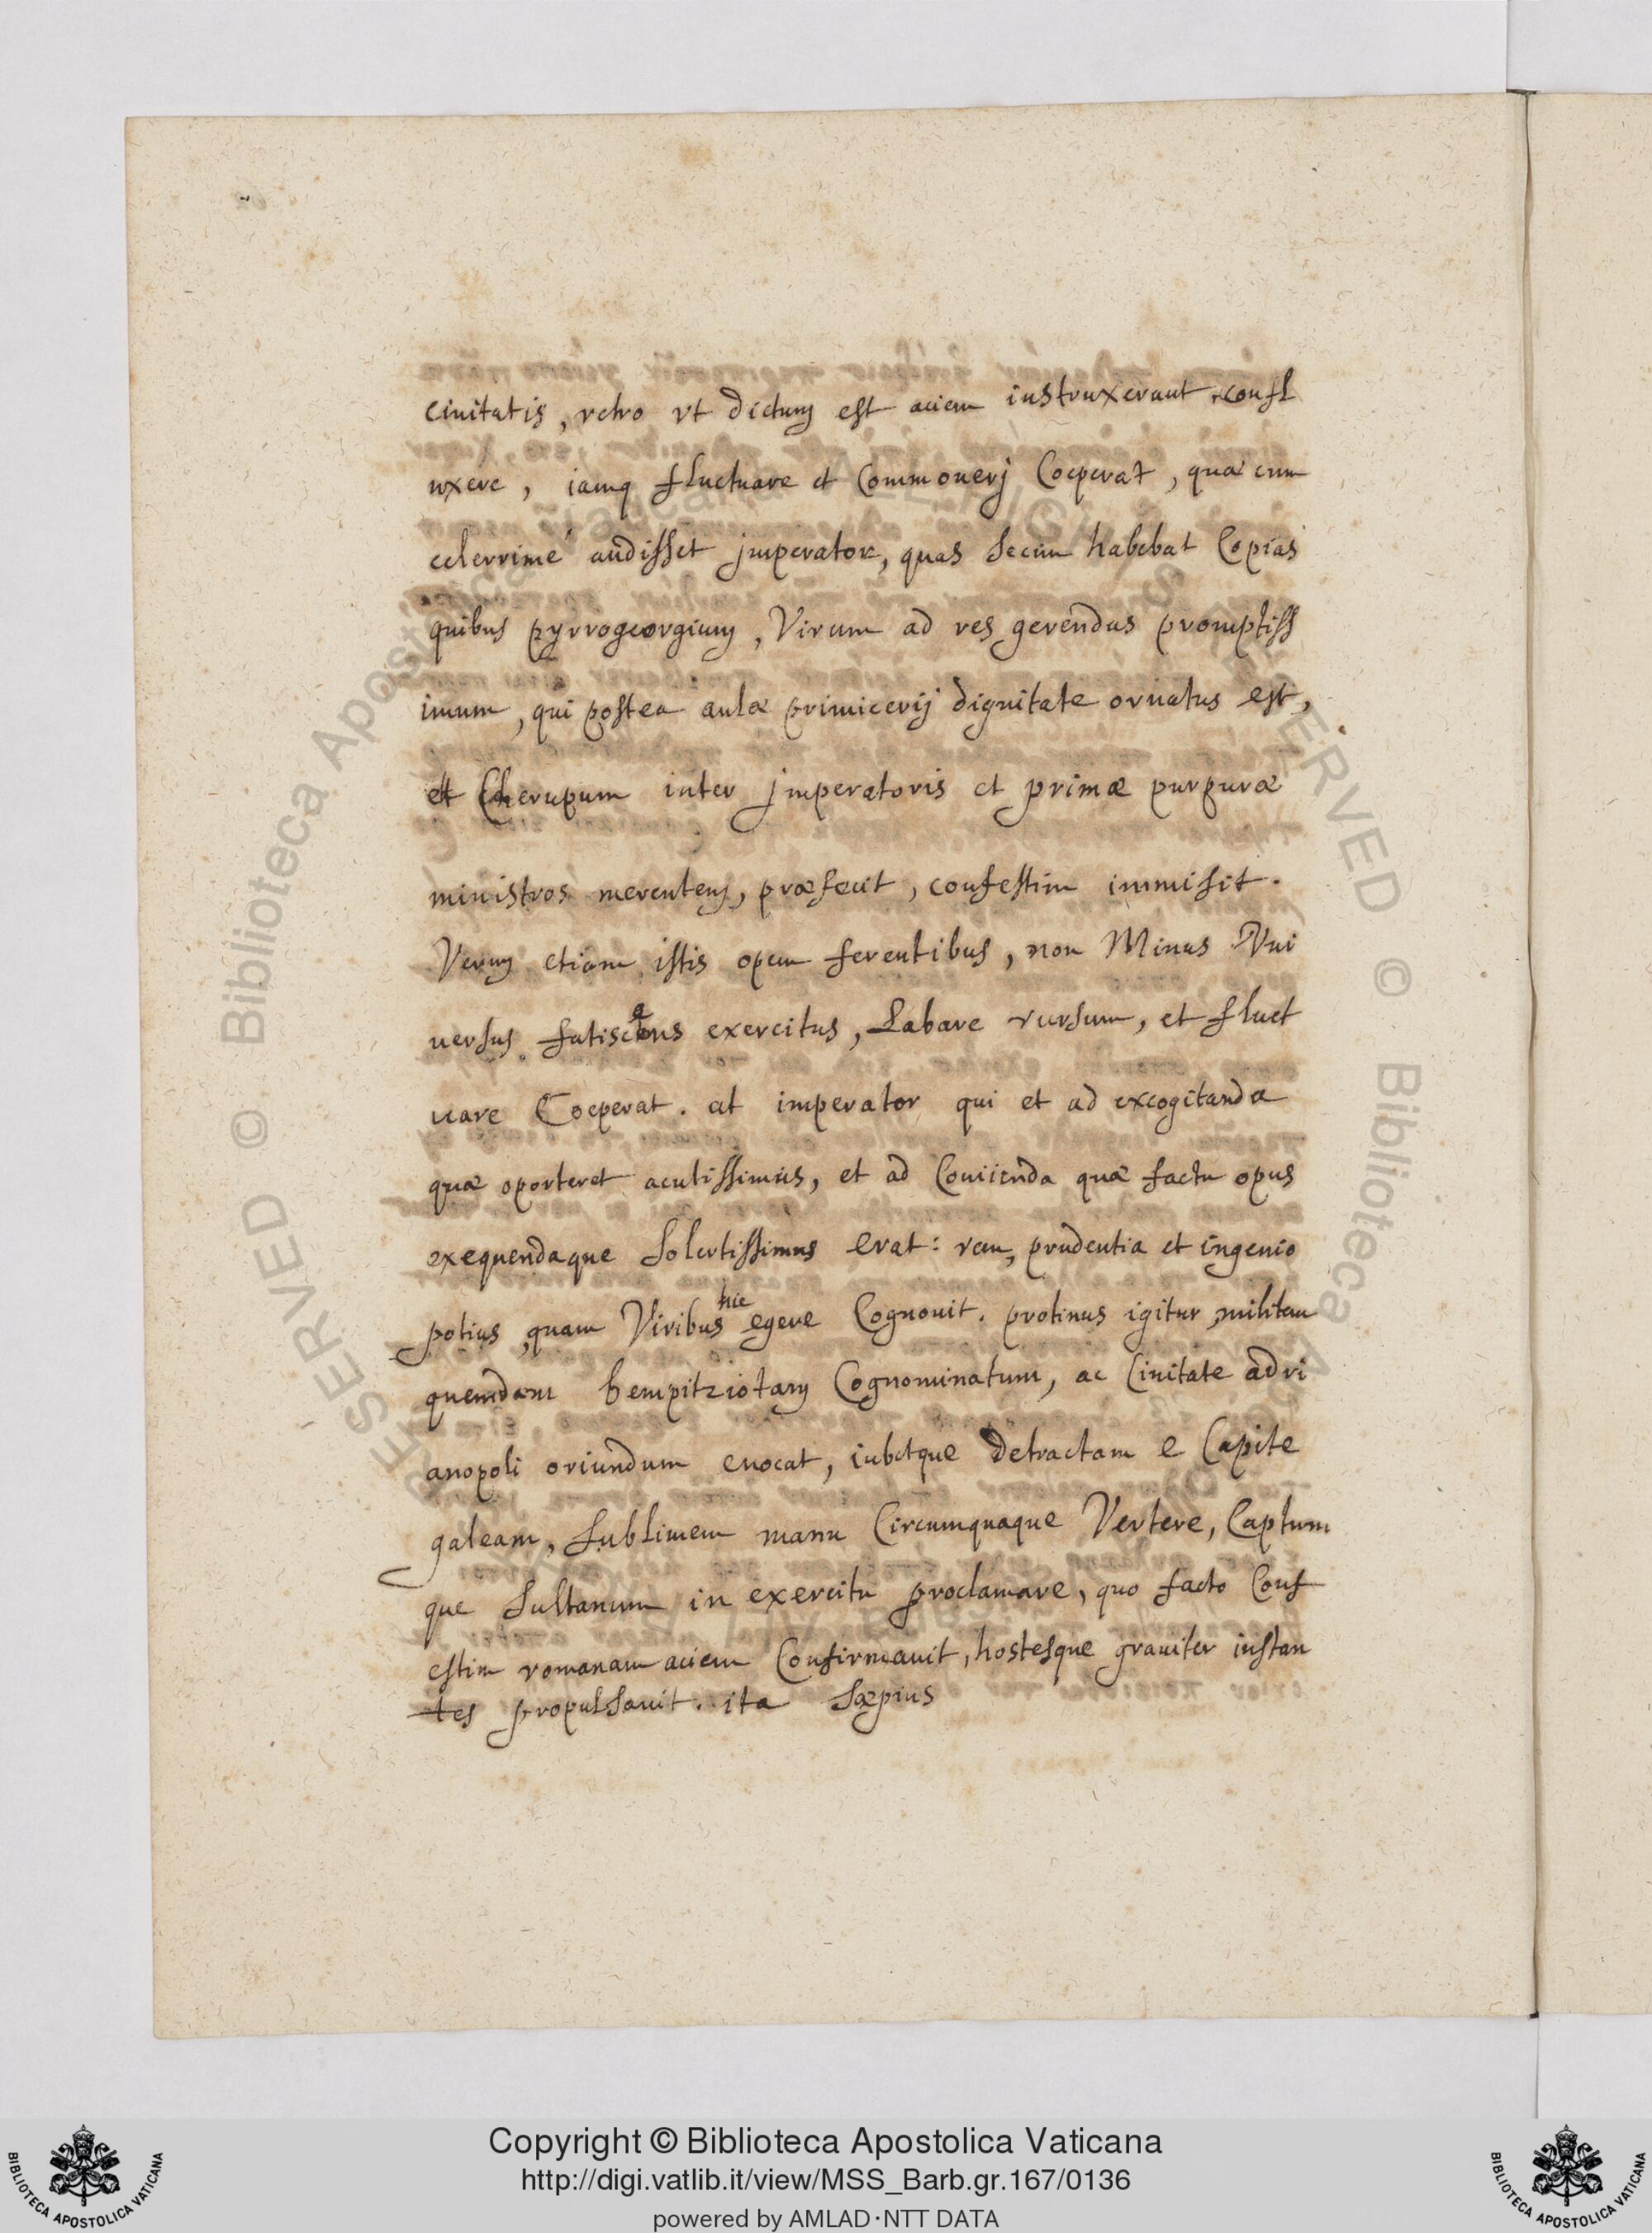 ciuitatis, retro vt dictum est aciem instruxerant, confl
uxere, iamq fluctuare et Commouerj Coeperat, quæ cum
celerrimé audisset jmperator, quas secum habebat Copias
quibus pyrrogeorgium, Virum ad res gerendas promptiss
imum, qui postea aulæ primicerij dignitate ornatus est,
et Cherupum inter jmperatoris et primæ purpuræ
ministros merentem, præfecit, confestim immisit.
Verum etiam istis opem ferentibus, non Minus Vni
uersus fatiscens exercitus, Labare rursum, et fluct
uare Coeperat. at imperator qui et ad excogitanda
quæ oporteret acutissimus, et ad quæ factu opus
exequendaque Solertissimus erat: rem, prudentia et ingenio
potius, quam Viribus hic egere Cognouit. protinus igitur, militem
quemdam bempitziotam Cognominatum, ac Ciuitate adri
anopoli oriundum euocat, iubetque detractam e Capite
galeam, Sublimem manu Circumquaque Vertere, Captum
que Sultanum in exercitu proclamare, quo facto Conf
estim romanam aciem Confirmauit, hostesque grauiter instan
tes propulsauit. ita Sæpius
Copyright © Biblioteca Apostolica Vaticana
http://digi.vatlib.it/view/MSS_Barb.gr.167/0136
powered by AMLAD·NTT DATA